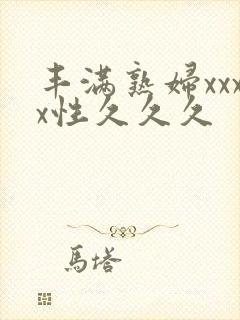 丰满熟婦xxx
x性久久久
馬塔